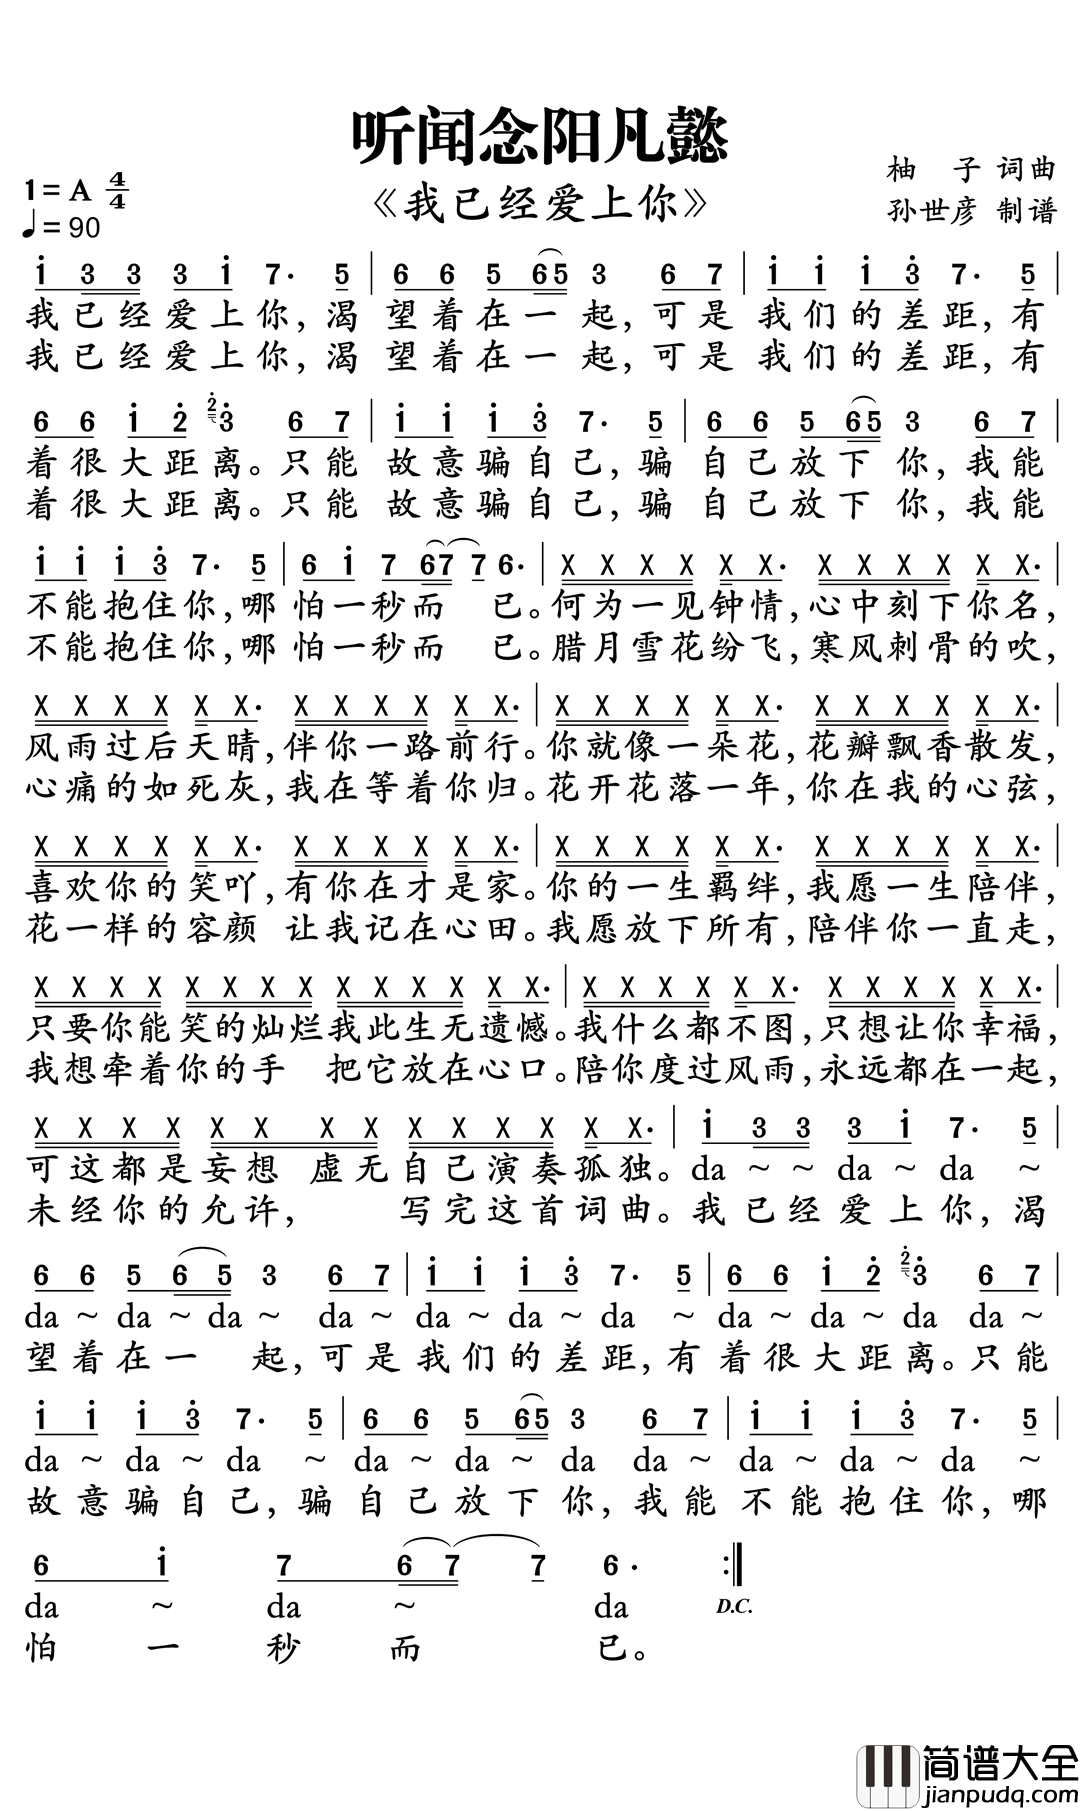 听闻念阳凡懿
《我已经爱上你》
柚 子 词曲
孙世彦 制谱
1= A 4/4
♩= 90
i 3 3 3 i 7. 5 | 6 6 5 6 5 3 6 7 | i i i 3̇ 7. 5 |
我已经爱上你,渴 望着在一起,可是 我们的差距,有
我已经爱上你,渴 望着在一起,可是 我们的差距,有
6 6 i 2̇ 2̇ 3̇ 6 7 | i i i 3̇ 7. 5 | 6 6 5 6 5 3 6 7 |
着很大距离。只能 故意骗自己,骗 自己放下你,我能
着很大距离。只能 故意骗自己,骗 自己放下你,我能
i i i 3̇ 7. 5 | 6 i 7 6 7 7 6. | X X X X X X. X X X X X X. |
不能抱住你,哪 怕一秒而 已。何为一见钟情,心中刻下你名,
不能抱住你,哪 怕一秒而 已。腊月雪花纷飞,寒风刺骨的吹,
X X X X X X. X X X X X X. | X X X X X X. X X X X X X. |
风雨过后天晴,伴你一路前行。你就像一朵花,花瓣飘香散发,
心痛的如死灰,我在等着你归。花开花落一年,你在我的心弦,
X X X X X X. X X X X X X. | X X X X X X. X X X X X X. |
喜欢你的笑吖,有你在才是家。你的一生羁绊,我愿一生陪伴,
花一样的容颜 让我记在心田。我愿放下所有,陪伴你一直走,
X X X X X X X X X X X X X X. | X X X X X X. X X X X X X. |
只要你能笑的灿烂我此生无遗憾。我什么都不图,只想让你幸福,
我想牵着你的手 把它放在心口。陪你度过风雨,永远都在一起,
X X X X X X X X X X X X X X. | i 3 3 3 i 7. 5 |
可这都是妄想 虚无自己演奏孤独。da ~ ~ da ~ da ~
未经你的允许, 写完这首词曲。我已经爱上你,渴
6 6 5 6 5 3 6 7 | i i i 3̇ 7. 5 | 6 6 i 2̇ 2̇ 3̇ 6 7 |
da ~ da ~ da ~ da ~ da ~ da ~ da ~ da ~ da ~ da da ~
望着在一 起,可是我们的差距,有着很大距离。只能
i i i 3̇ 7. 5 | 6 6 5 6 5 3 6 7 | i i i 3̇ 7. 5 |
da ~ da ~ da ~ da ~ da ~ da da ~ da ~ da ~ da ~
故意骗自己,骗自己放下你,我能不能抱住你,哪
6 i 7 6 7 7 6. :||
da ~ da ~ da D.C.
怕一秒而 已。
简谱大全
jianpudq.com